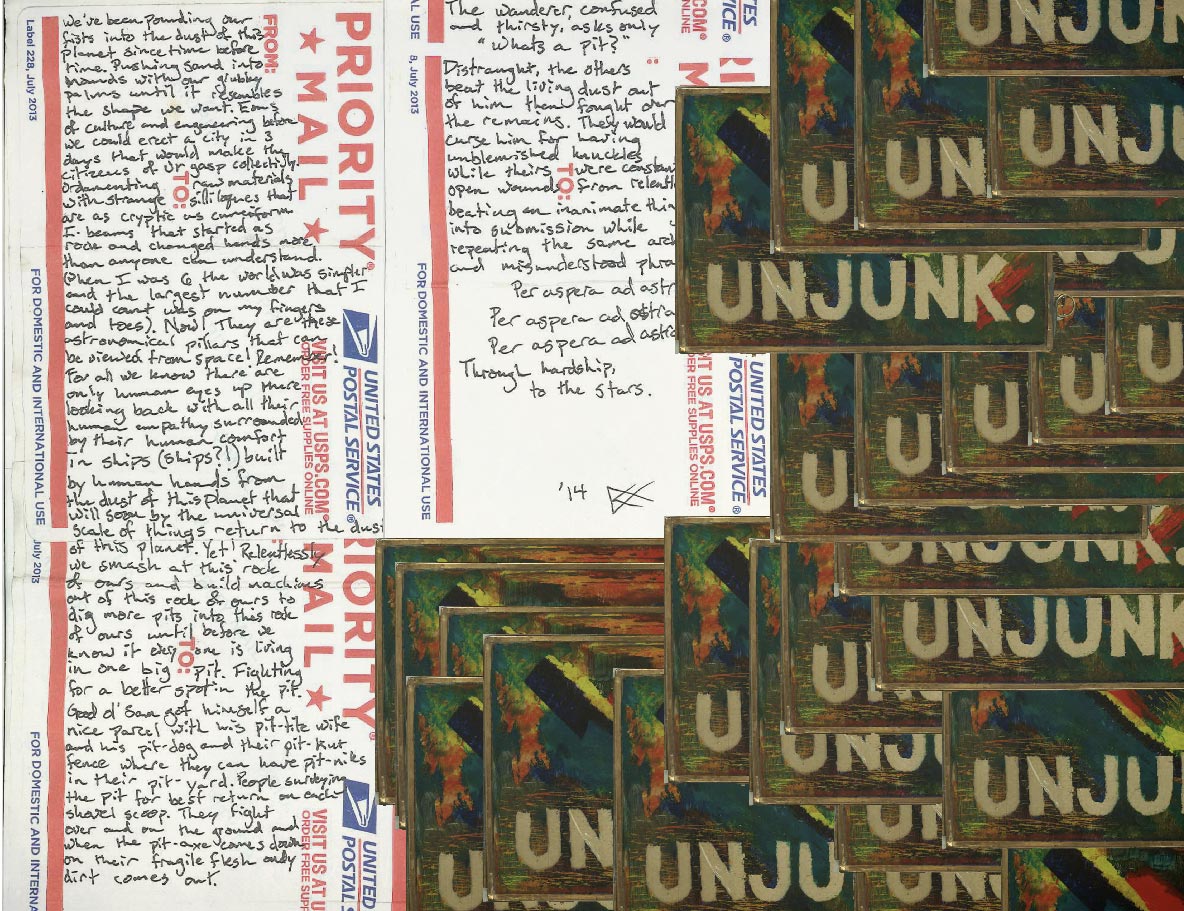 we've been pounding our
fists into the dust of this
planet since time before
time. Pushing sand into
mounds with our grubby
palms until it resembles
the shape we want. Eons
of culture and engineering before
we could erect a city in 3
days that would make the
citizens of Ur gasp collectivly.
Ordamenting raw materials
with strange
are as cryptic as cuneiform
I-beams that started as
rock and changed hands more
than anyone can understand.
(When I was 6 the world was simpler
and the largest number that I
could count was on my fingers
and toes). Now! They are these
astronomical pillars that can
be viewed from space! Remember!
For all we know there are
only human eyes up there
looking back with all their
human empathy surrounded
by their human comfort
in ships (ships?!) built
by human hands from
the dust of this planet that
will soon by the universal
scale of things return to the dust
of this planet. Yet! Relentlessly
we smash at this rock
of ours and build machines
out of this rock of ours to
dig more pits into this rock
of ours until before we
know it every one is living
in one big pit. Fighting
for a better spot in the pit.
Good ol' Sam got himself a
nice parcel with his pit-tite wife
and his pit-dog and their pit-kut
fence where they can have pit-niks
in their pit-yard. People surveying
the pit for best return on each
shovel scoop. They fight
over and on the ground and
when the pit-axe comes down
on their fragile flesh only
dirt comes out.
The wanderer, confused
and thirsty, asks only
"whats a pit?"
Distraught, the others
beat the living dust out
of him then fought over
the remains. They would
curse him for having
unblemished knuckles
while theirs were constan
open wounds from relentl
beating on inanimate thin
into submission while
repeating the same arc
and misunderstood phra
Per aspera ad astr
Per aspera ad astra
Per aspera ad astra
Through hardship,
to the stars.
'14
Label 228, July 2013
FROM:
PRIORITY
★ MAIL ★
TO:
FOR DOMESTIC AND INTERNATIONAL USE
VISIT US AT USPS.COM®
ORDER FREE SUPPLIES ONLINE
UNITED STATES
POSTAL SERVICE®
July 2013
IORITY
MAIL ★
TO:
FOR DOMESTIC AND INTERN
VISIT US AT U
ORDER FREE SUPPL
UNITED
POSTAL S
AL USE
8, July 2013
TO:
M
FOR DOMESTIC AND INTERNATIONAL USE
COM®
ONLINE
ES
ICE®
IT US AT USPS.COM®
DER FREE SUPPLIES ONLINE
UNITED STATES
POSTAL SERVICE®
UNJUN
UNJU
UN
U
UNJUNK.
U
U
U
U
U
UNJUNK.
UNJUNK
U
U
UNJU
UNJU
UN
UN
U
UNJU